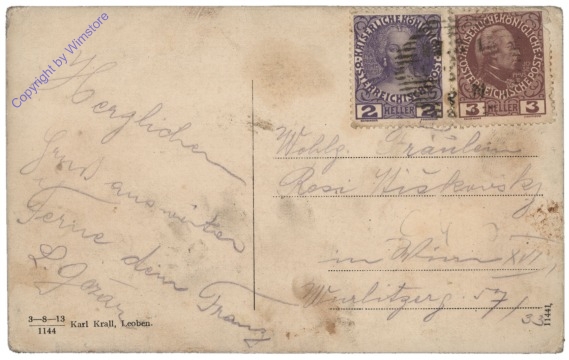 Copyright by Wimstore
KAISERLICHE KÖNIGLICHE
ÖSTERREICHISCHE POST
2 HELLER 2
KAISERLICHE KÖNIGLICHE
ÖSTERREICHISCHE POST
3 HELLER 3
Herzlichen
Gruß aus weiter
Ferne dein Franz
Wohlg. Fräulein
Rosi
in Wien XVI,
Wurlitzerg. 57/
33
3—8—13
1144
Karl Krall, Leoben.